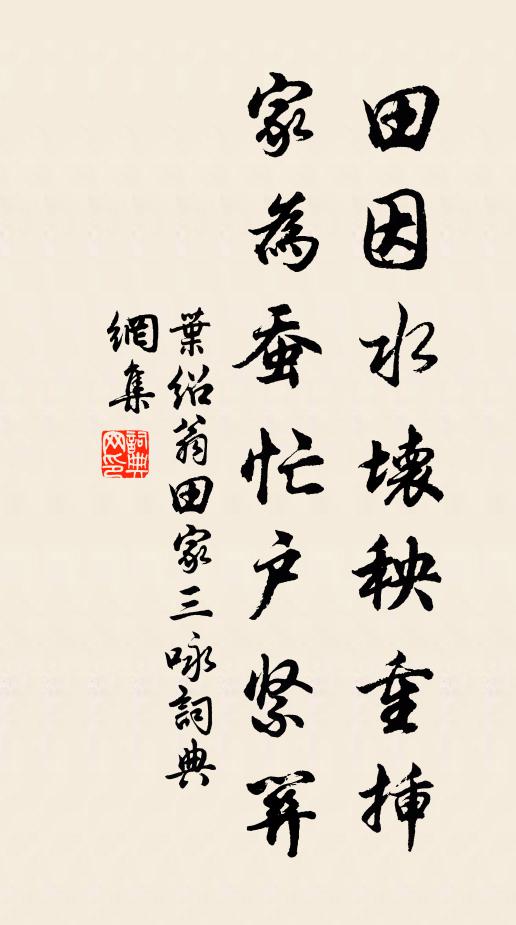 田因水壞秧重插
家為蚕忙户紧關
葉紹翁田家三咏詞典
網集
詞典網印